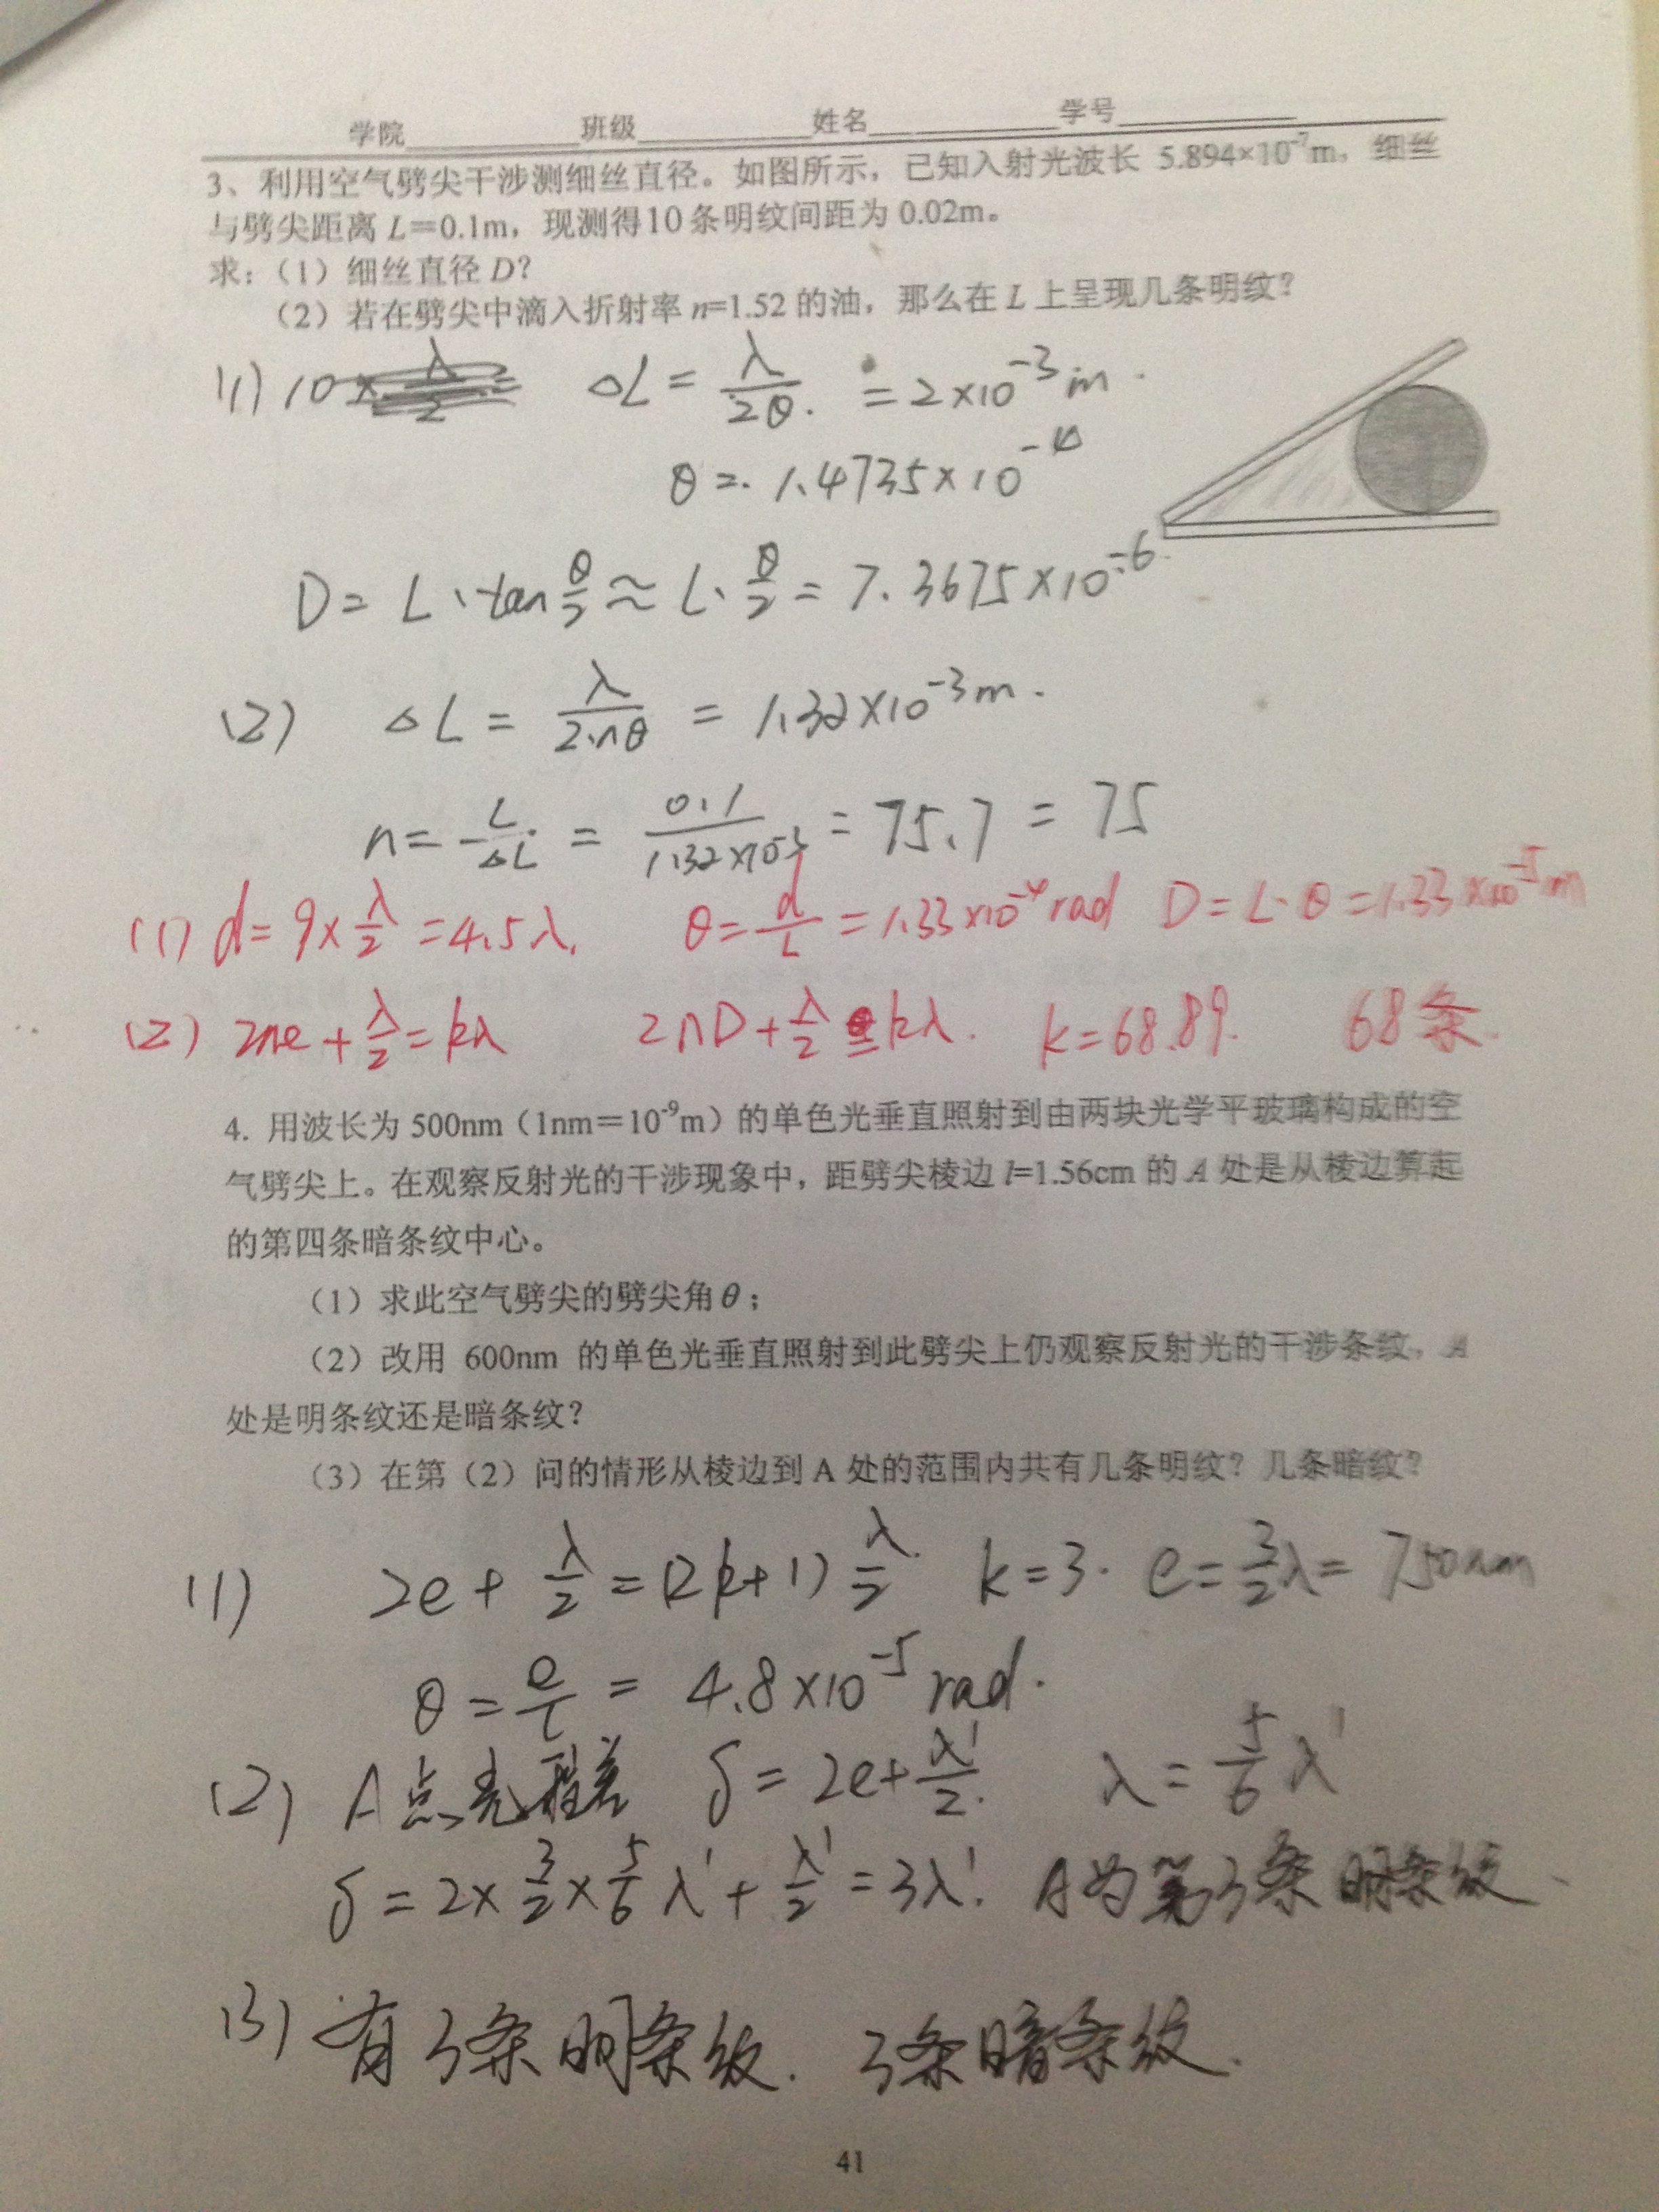 学院 班级 姓名 学号
3、利用空气劈尖干涉测细丝直径。如图所示，已知入射光波长 5.894×10⁻⁷m，细丝
与劈尖距离 L=0.1m，现测得10条明纹间距为 0.02m。
求：（1）细丝直径 D？
（2）若在劈尖中滴入折射率 n=1.52 的油，那么在 L 上呈现几条明纹？
(1) 10 ΔL = λ/2θ. = 2×10⁻³m.
θ = 1.4735×10⁻⁴
D = L·tan θ/2 ≈ L·θ/2 = 7.3675×10⁻⁶
(2) ΔL = λ/2nθ = 1.32×10⁻³m.
n = L/ΔL = 0.1/1.32×10⁻³ = 75.7 = 75
(1) d = 9×λ/2 = 4.5λ. θ = d/L = 1.33×10⁻⁴rad D = L·θ = 1.33×10⁻⁵m
(2) 2ne + λ/2 = kλ 2nD + λ/2 = kλ. k = 68.89. 68条.
4. 用波长为 500nm（1nm=10⁻⁹m）的单色光垂直照射到由两块光学平玻璃构成的空
气劈尖上。在观察反射光的干涉现象中，距劈尖棱边 l=1.56cm 的 A 处是从棱边算起
的第四条暗条纹中心。
（1）求此空气劈尖的劈尖角θ；
（2）改用 600nm 的单色光垂直照射到此劈尖上仍观察反射光的干涉条纹，A
处是明条纹还是暗条纹？
（3）在第（2）问的情形从棱边到 A 处的范围内共有几条明纹？几条暗纹？
(1) 2e + λ/2 = (2k+1) λ/2 k = 3. e = 3/2 λ = 750nm
θ = e/l = 4.8×10⁻⁵ rad.
(2) A点光程差 δ = 2e + λ'/2. λ = 5/6 λ'
δ = 2×3/2×5/6 λ' + λ'/2 = 3λ'. A为第3条明条纹.
(3) 有3条明条纹. 3条暗条纹.
41